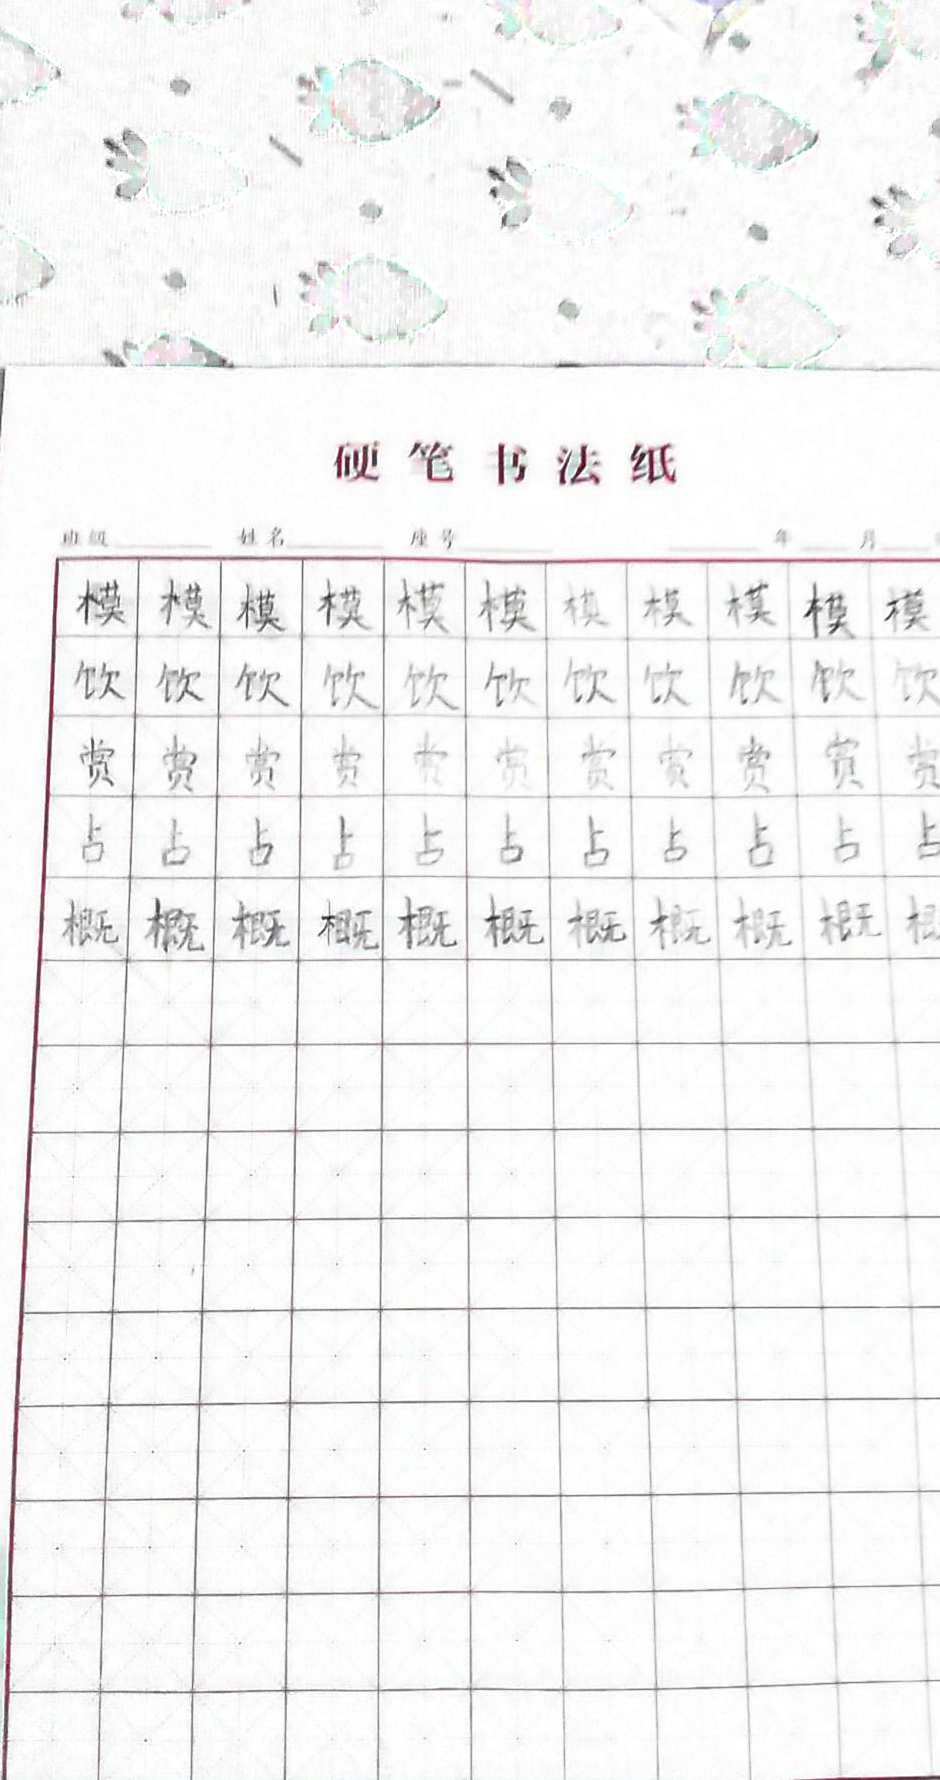 硬笔书法纸
班级 姓名 座号 年 月
模模模模模模模模模模模
饮饮饮饮饮饮饮饮饮饮饮
赏赏赏赏赏赏赏赏赏赏赏
占占占占占占占占占占占
概概概概概概概概概概